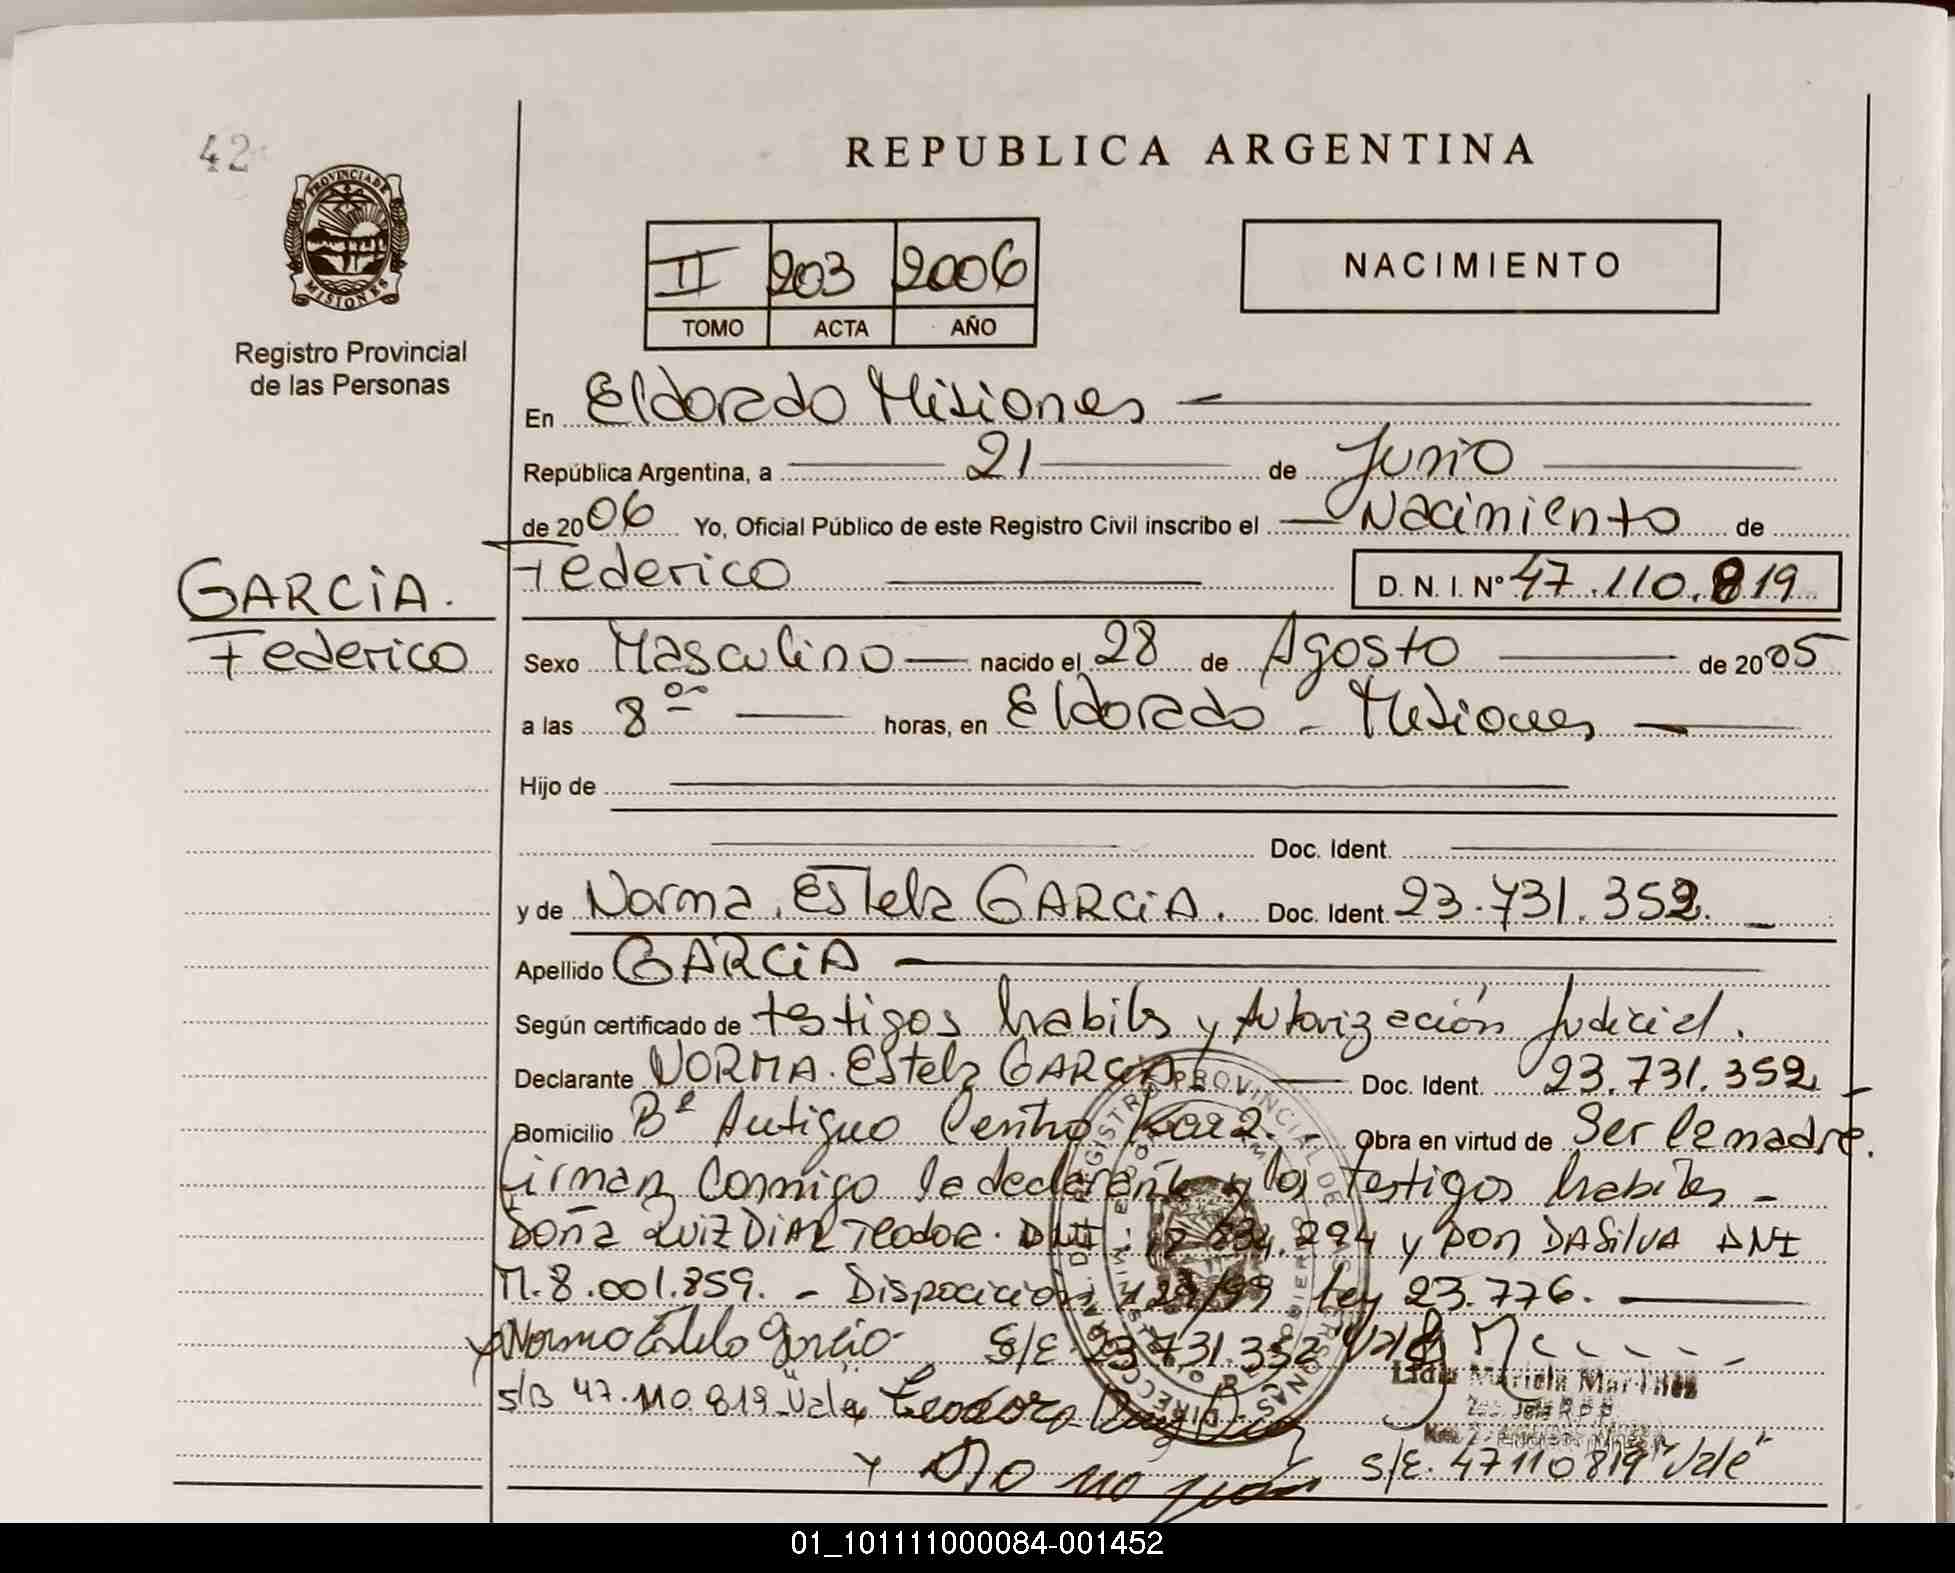 42
PROVINCIA DE
MISIONES
Registro Provincial
de las Personas
REPUBLICA ARGENTINA
II 203 2006
TOMO ACTA AÑO
NACIMIENTO
En Eldorado Misiones
República Argentina, a 21 de Junio
de 2006 Yo, Oficial Público de este Registro Civil inscribo el Nacimiento de
Federico D. N. I. Nº 47.110.819
GARCiA.
Federico
Sexo Masculino nacido el 28 de Agosto de 2005
a las 8 horas, en Eldorado - Misiones
Hijo de
Doc. Ident.
y de Norma Estela GARCiA. Doc. Ident. 23.731.352.
Apellido GARCiA
Según certificado de testigos habiles y Autorización Judicial.
Declarante NORMA Estela GARCiA Doc. Ident. 23.731.352
Domicilio Bº Antiguo Centro Obra en virtud de Ser la madre.
firman conmigo la declarante y los testigos habiles -
Doña RuiZ DiAZ Teodora. DNI 294 y Don DASilVA DNI
M.8.001.859. - Dispocición Ley 23.776.
Norma Estela Garcia S/E 23.731.352 Vale
Lidia Mariela Martinez
S/B 47.110.819 Vale Teodora Ruiz Diaz
S/E. 47110819 "Vale"
01_101111000084-001452